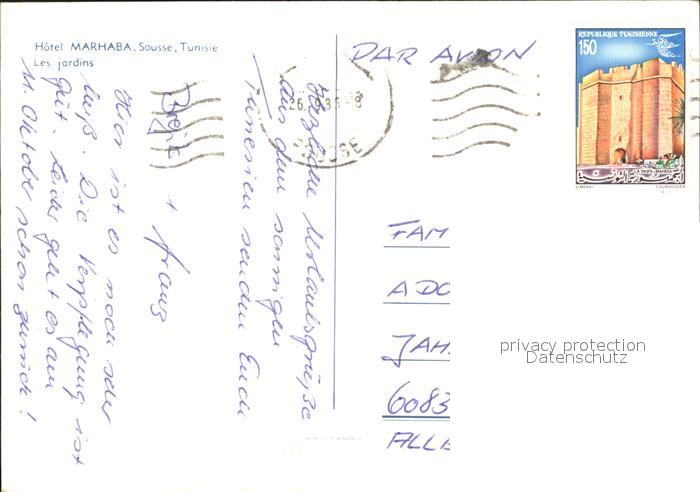 Hôtel MARHABA. Sousse, Tunisie
Les jardins
PAR AVION
REPUBLIQUE TUNISIENNE
150
LA SKIFA - MAHDIA
الجمهورية التونسية
COURVOISIER
SOUSSE
Herzliche Urlaubsgrüße
aus dem sonnigen
Tunesien senden Euch
+ Franz
Hier ist es noch sehr
heiß. Die Verpflegung ist
gut. Leider geht es am
11. Oktober schon zurück!
FAM
ADO
JAH
6083
ALLE
privacy protection
Datenschutz